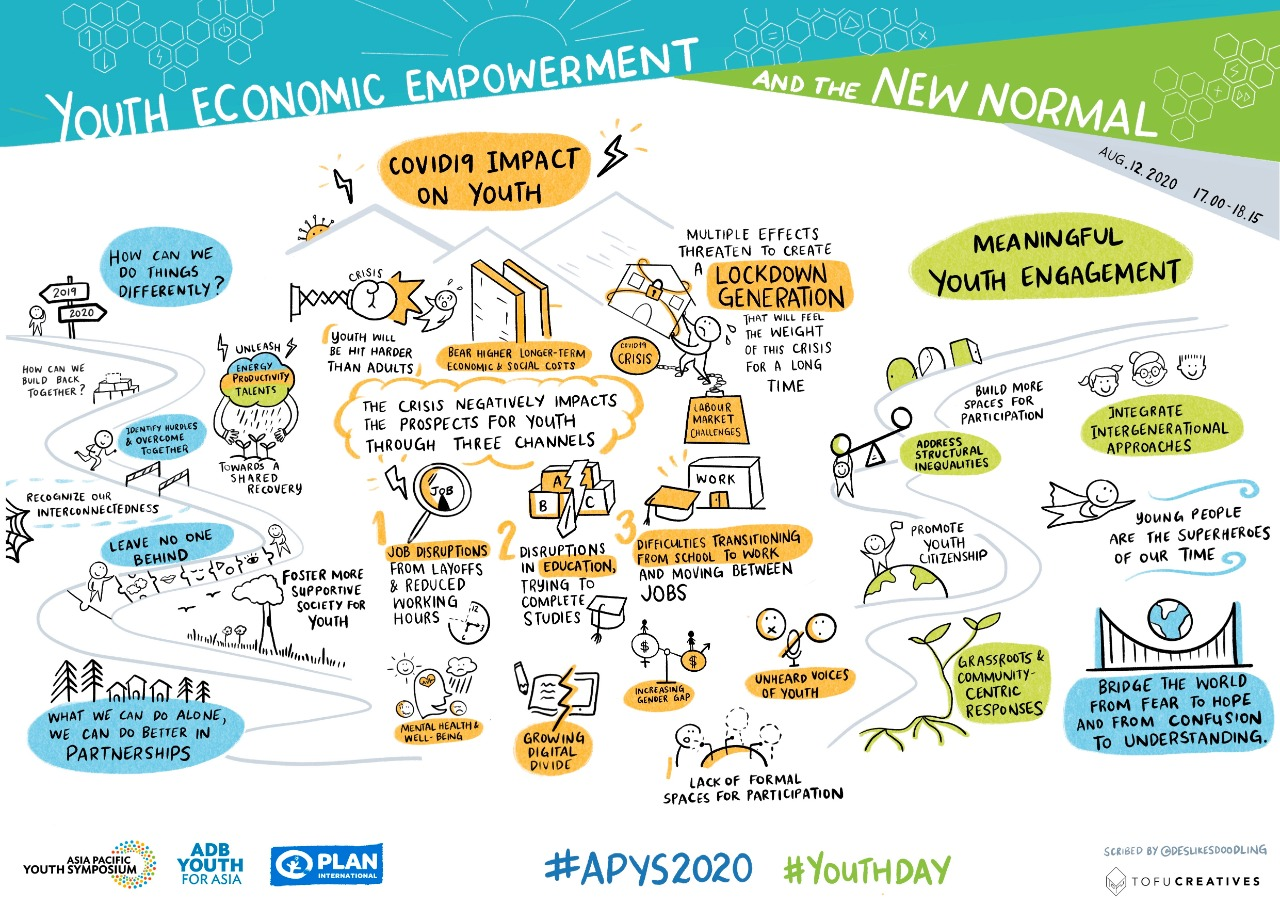 YOUTH ECONOMIC EMPOWERMENT
AND THE NEW NORMAL
AUG.12.2020 17.00-18.15
COVID19 IMPACT
ON YOUTH
HOW CAN WE
DO THINGS
DIFFERENTLY?
2019
2020
HOW CAN WE
BUILD BACK
TOGETHER?
UNLEASH
ENERGY
PRODUCTIVITY
TALENTS
TOWARDS A
SHARED
RECOVERY
IDENTIFY HURDLES
& OVERCOME
TOGETHER
RECOGNIZE OUR
INTERCONNECTEDNESS
LEAVE NO ONE
BEHIND
FOSTER MORE
SUPPORTIVE
SOCIETY FOR
YOUTH
WHAT WE CAN DO ALONE,
WE CAN DO BETTER IN
PARTNERSHIPS
CRISIS
YOUTH WILL
BE HIT HARDER
THAN ADULTS
BEAR HIGHER LONGER-TERM
ECONOMIC & SOCIAL COSTS
MULTIPLE EFFECTS
THREATEN TO CREATE
A LOCKDOWN
GENERATION
THAT WILL FEEL
THE WEIGHT
OF THIS CRISIS
FOR A LONG
TIME
COVID19
CRISIS
LABOUR
MARKET
CHALLENGES
THE CRISIS NEGATIVELY IMPACTS
THE PROSPECTS FOR YOUTH
THROUGH THREE CHANNELS
JOB
1
JOB DISRUPTIONS
FROM LAYOFFS
& REDUCED
WORKING
HOURS
12
3
6
9
A
B C
2
DISRUPTIONS
IN EDUCATION,
TRYING TO
COMPLETE
STUDIES
WORK
3
DIFFICULTIES TRANSITIONING
FROM SCHOOL TO WORK
AND MOVING BETWEEN
JOBS
MENTAL HEALTH &
WELL-BEING
GROWING
DIGITAL
DIVIDE
$ $
INCREASING
GENDER GAP
UNHEARD VOICES
OF YOUTH
LACK OF FORMAL
SPACES FOR PARTICIPATION
MEANINGFUL
YOUTH ENGAGEMENT
BUILD MORE
SPACES FOR
PARTICIPATION
INTEGRATE
INTERGENERATIONAL
APPROACHES
ADDRESS
STRUCTURAL
INEQUALITIES
YOUNG PEOPLE
ARE THE SUPERHEROES
OF OUR TIME
PROMOTE
YOUTH
CITIZENSHIP
GRASSROOTS &
COMMUNITY-
CENTRIC
RESPONSES
BRIDGE THE WORLD
FROM FEAR TO HOPE
AND FROM CONFUSION
TO UNDERSTANDING.
ASIA PACIFIC
YOUTH SYMPOSIUM
ADB
YOUTH
FOR ASIA
PLAN
INTERNATIONAL
#APYS2020 #YOUTHDAY
SCRIBED BY @DESLIKESDOODLING
TOFU CREATIVES